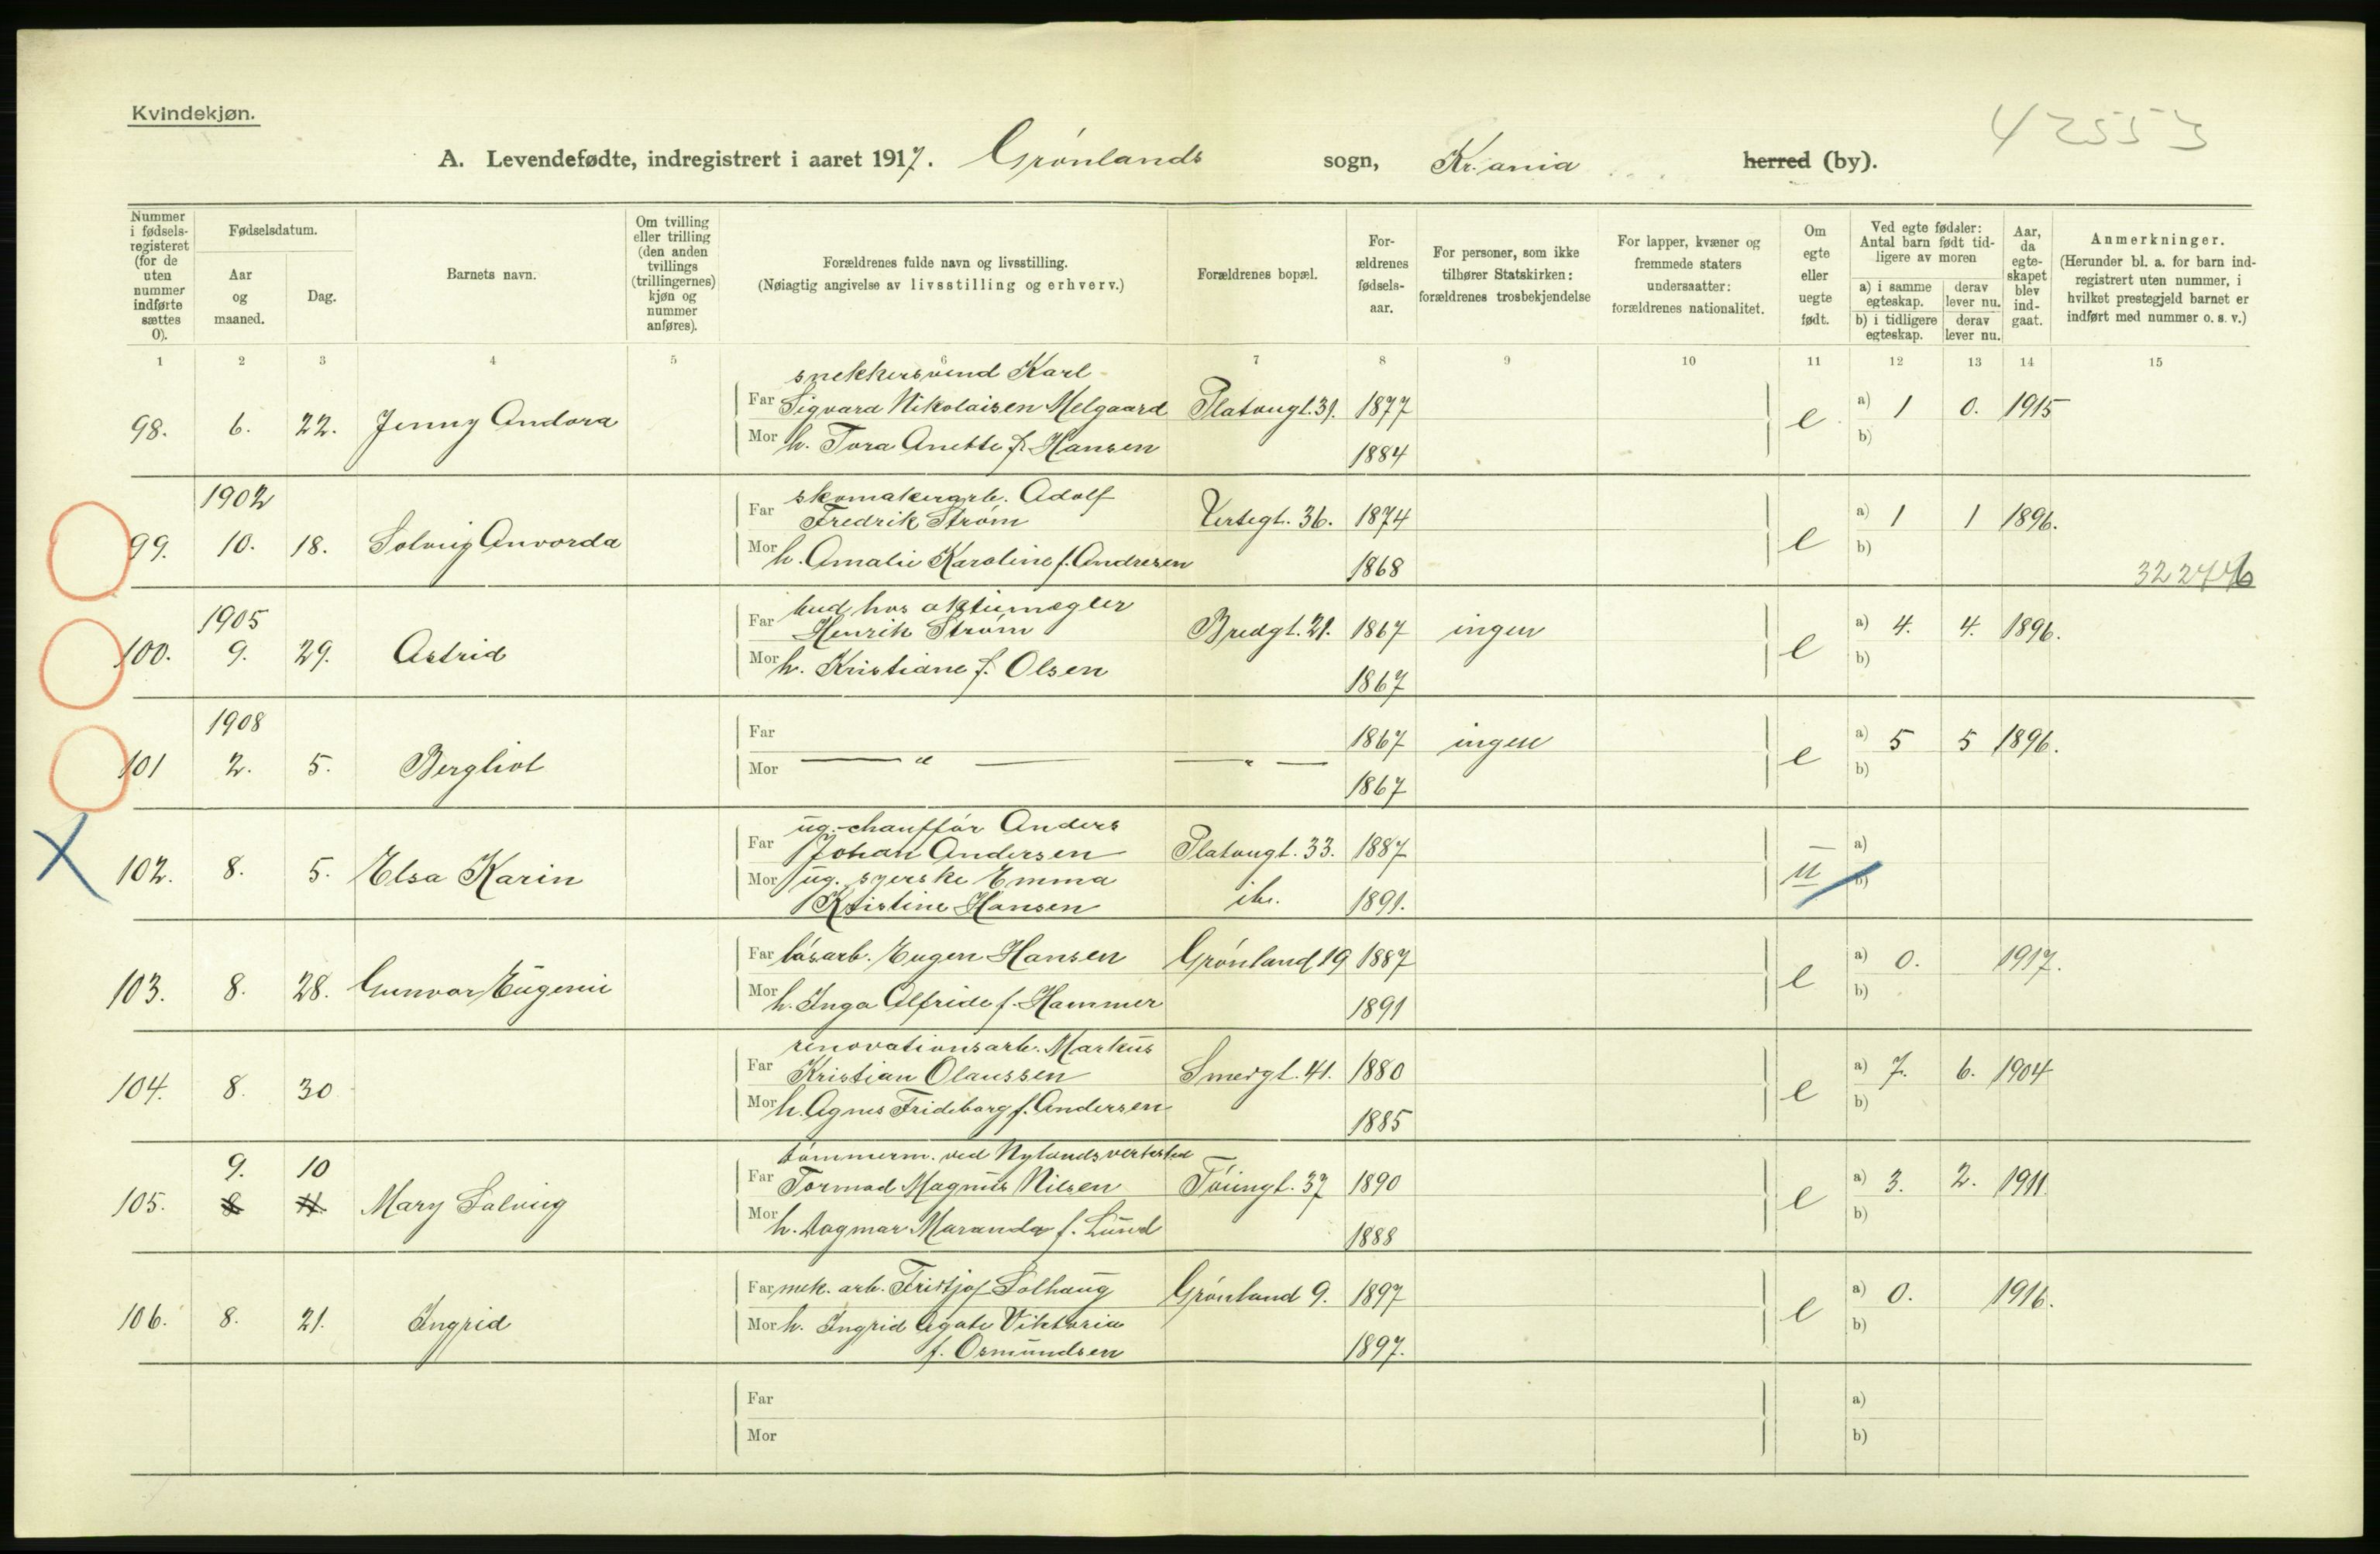 Kvindekjøn.
42553
A. Levendefødte, indregistrert i aaret 1917. Grønlands sogn, Kr.ania herred (by).
Nummer i fødsels-registeret (for de uten nummer indførte sættes 0).
Fødselsdatum.
Aar og maaned.
Dag.
Barnets navn.
Om tvilling eller trilling (den anden tvillings (trillingernes) kjøn og nummer anføres).
Forældrenes fulde navn og livsstilling.
(Nøiagtig angivelse av livsstilling og erhverv.)
Forældrenes bopæl.
For-ældrenes fødsels-aar.
For personer, som ikke tilhører Statskirken: forældrenes trosbekjendelse
For lapper, kvæner og fremmede staters undersaatter: forældrenes nationalitet.
Om egte eller uegte født.
Ved egte fødsler: Antal barn født tid-ligere av moren
a) i samme egteskap.
derav lever nu.
b) i tidligere egteskap.
derav lever nu.
Aar, da egte-skapet blev ind-gaat.
Anmerkninger.
(Herunder bl. a. for barn ind-registrert uten nummer, i hvilket prestegjeld barnet er indført med nummer o. s. v.)
1 2 3 4 5 6 7 8 9 10 11 12 13 14 15
snekkersvend Karl
98. 6. 22. Jenny Andora Far Sigvard Nikolaisen Melgaard Platougt. 31. 1877 e a) 1 0. 1915
Mor h. Tora Anette f. Hansen 1884 b)
1902 skomakerarb. Adolf
99. 10. 18. Solveig Anvorda Far Fredrik Strøm Vertsgt. 36. 1874 e a) 1 1 1896.
Mor h. Amalie Karoline f. Andresen 1868 b)
322476
1905 bud hos aktiemegler
100. 9. 29. Astrid Far Henrik Strøm Bredgt. 21. 1867 ingen e a) 4. 4. 1896.
Mor h. Kristiane f. Olsen 1867 b)
1908
101 2. 5. Bergliot Far — " — — " — 1867 ingen e a) 5 5 1896.
Mor 1867 b)
ug. chauffør Anders
102. 8. 5. Elsa Karin Far Johan Andersen Platougt. 33. 1887 u a)
Mor ug. syerske Emma b)
Kristine Hansen ib. 1891.
103. 8. 28. Gunvor Eugenie Far løsarb. Eugen Hansen Grønland 19 1887 e a) 0. 1917.
Mor h. Inga Alfride f. Hammer 1891 b)
renovationsarb. Markus
104. 8. 30 Far Kristian Olaussen Smedgt. 41. 1880 e a) 7. 6. 1904
Mor h. Agnes Frideborg f. Andersen 1885 b)
9. 10 tømmerm. ved Nylands verksted
105. 8 11. Mary Solveig Far Tormod Magnus Nilsen Tøiengt. 37 1890 e a) 3. 2. 1911.
Mor h. Dagmar Maranda f. Lund 1888 b)
106. 8. 21. Ingrid Far mek. arb. Fridtjof Solhaug Grønland 9. 1897 e a) 0. 1916.
Mor h. Ingrid Agate Viktoria b)
f. Osmundsen 1897.
Far a)
Mor b)